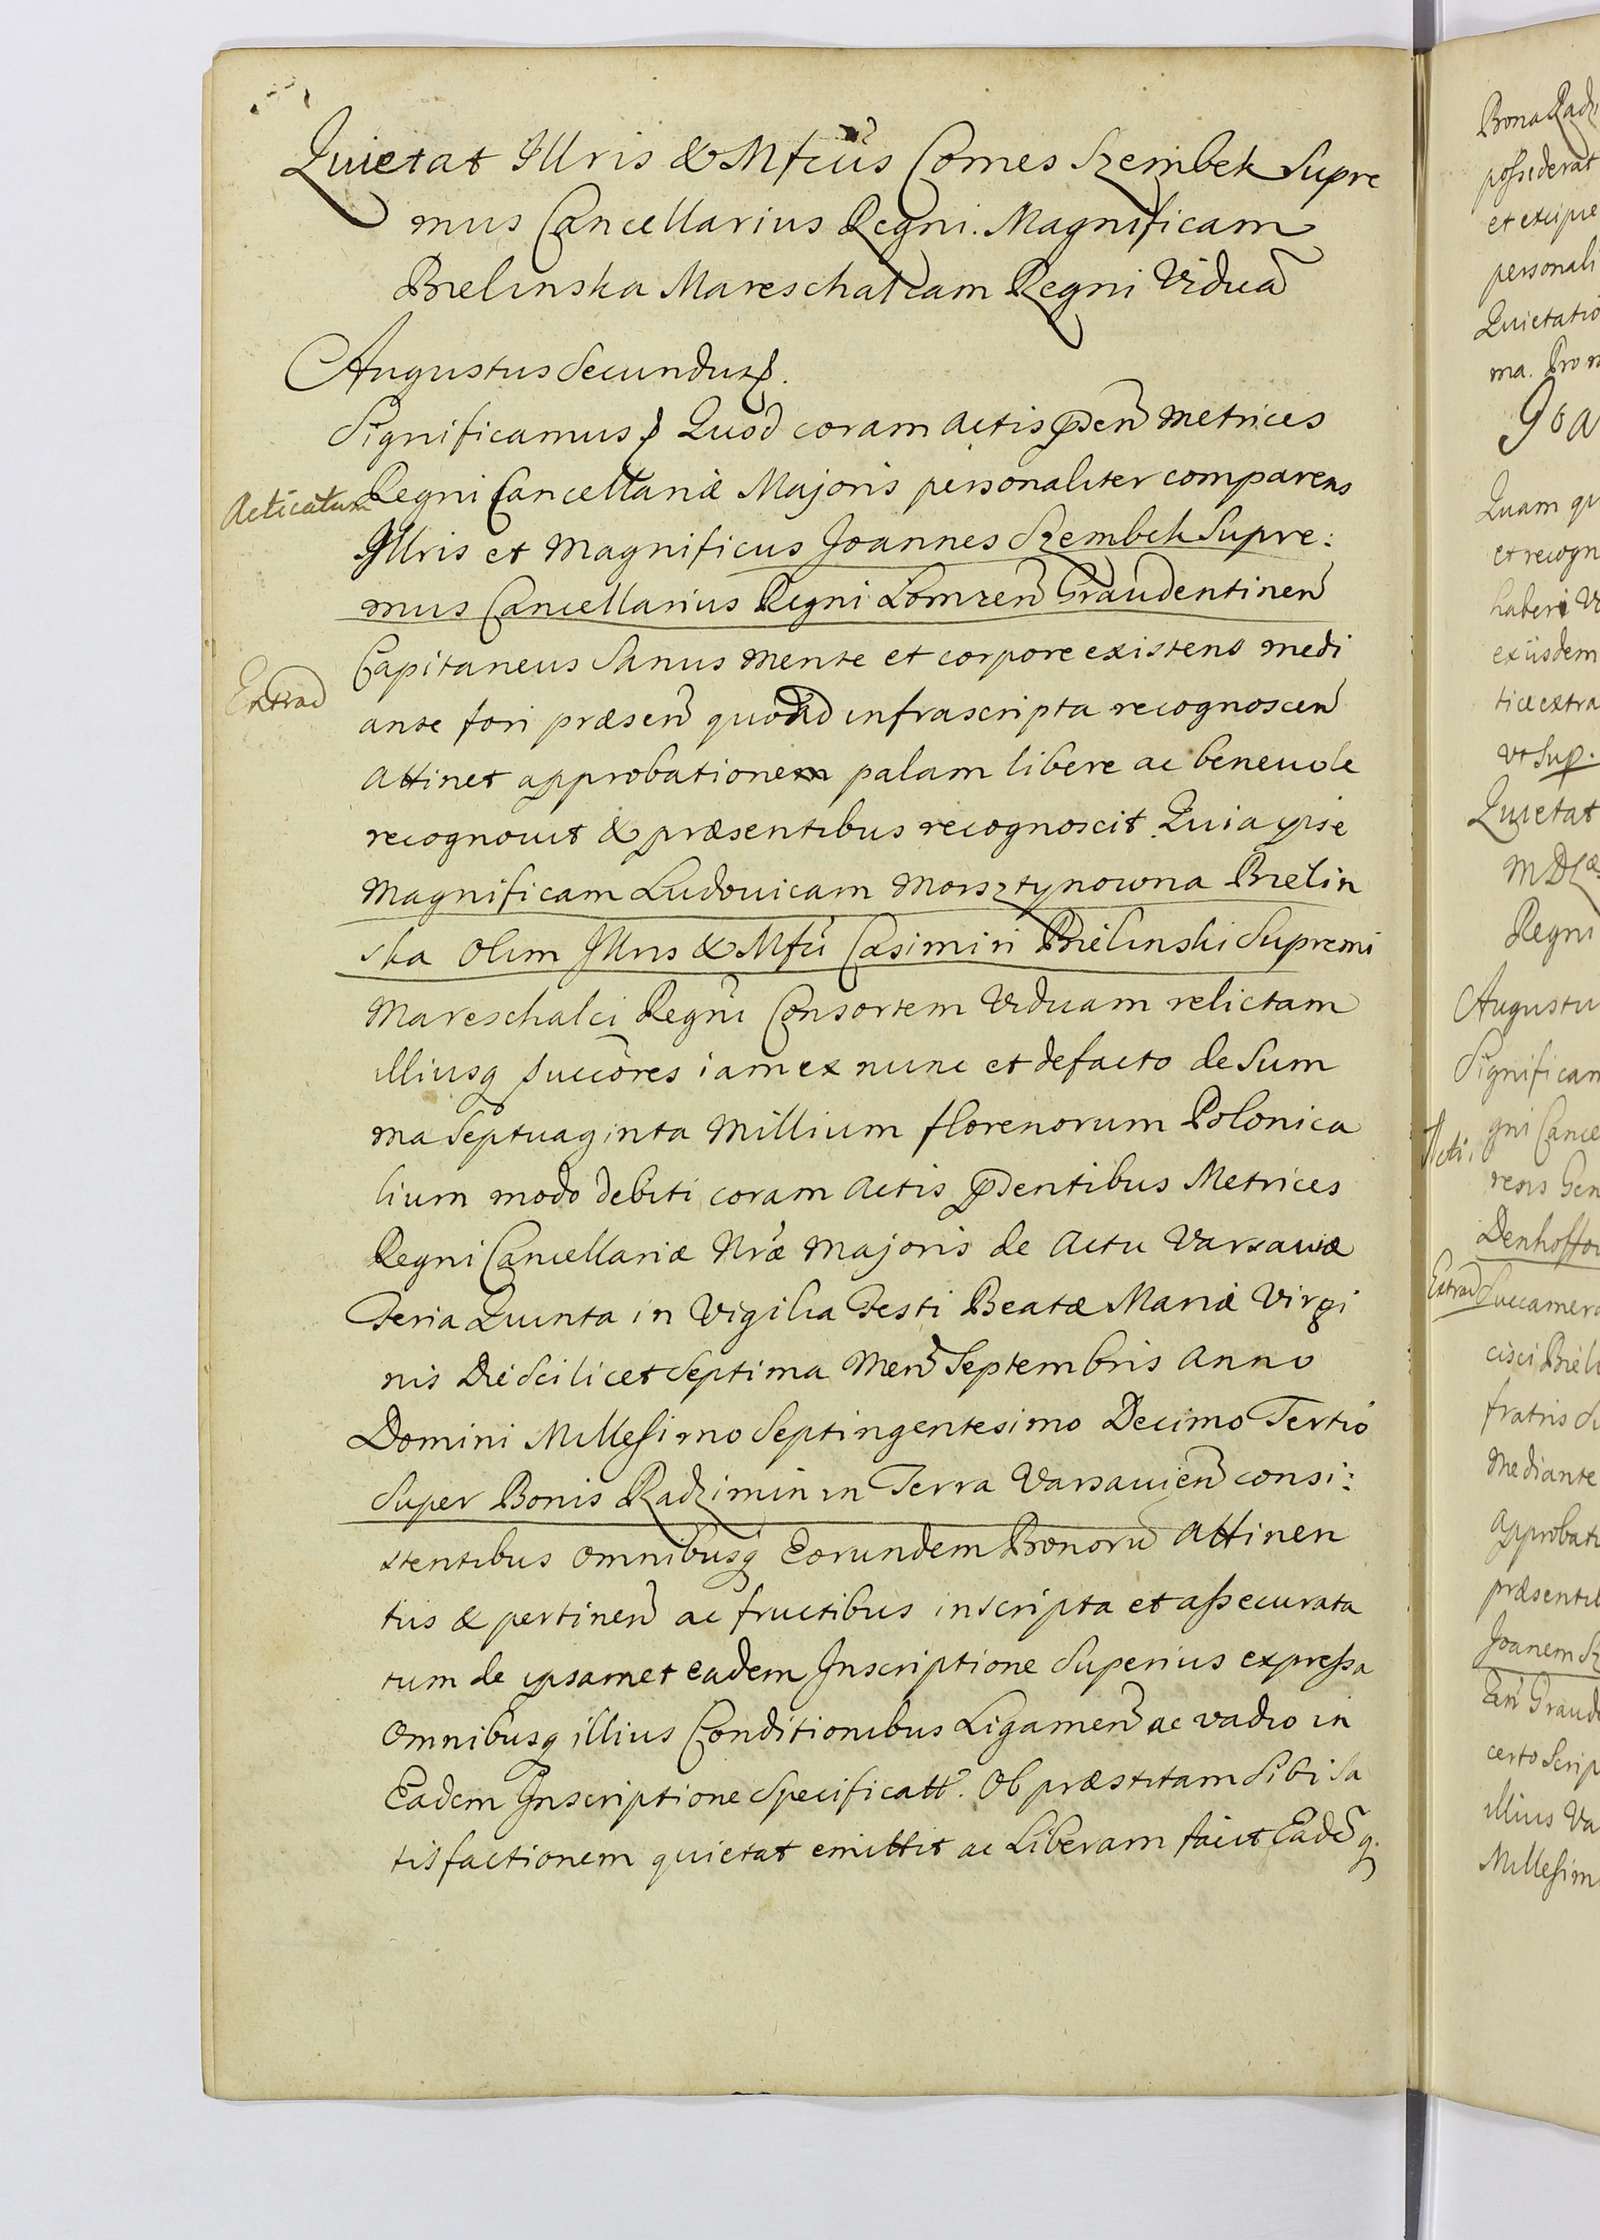 Quietat Illris & Mfcus Comes Szembek Supre
mus Cancellarius Regni. Magnificam
Bielinska Mareschalcam Regni Viduã
Augustus Secundus.
Significamus Quod coram actis p̃den̄ Metrices
Acticatum
Regni Cancellariæ Majoris personaliter comparens
Illris et Magnificus Joannes Szembek Supre:
mus Cancellarius Regni Lomzen̄ Graudentinen̄
Capitaneus Sanus mente et corpore existens medi
Extrad
ante fori præsen̄ quoad infrascripta recognoscen̄
attinet approbationem palam libere ac beneuole
recognouit & præsentibus recognoscit Quia ipse
Magnificam Ludouicam Morsztynowna Bielin
ska Olim Illris & Mfci Casimiri Bielinski Supremi
Mareschalci Regni Consortem Viduam relictam
illiusq succōres iam ex nunc et de facto de Sum
ma Septuaginta Millium florenorum Polonica
lium modo debiti coram Actis p̃dentibus Metrices
Regni Cancellariæ Nr̃æ Majoris de Actu Varsauiæ
Feria Quinta in Vigilia Festi Beatæ Mariæ Virgi
nis Die Scilicet Septima Men̄ Septembris Anno
Domini Millesimo Septingentesimo Decimo Tertio
Super Bonis Radzimin in Terra Varsauien̄ consi:
stentibus omnibusq Eorundem Bonorū Attinen
tiis & pertinen̄ ac fructibus inscripta et assecurata
tum de ipsamet eadem Inscriptione Superius expressa
Omnibusq illius Conditionibus Ligamen̄ ac vadio in
Eadem Inscriptione Specificatt. Ob præstitam Sibi Sa
tisfactionem quietat emittit ac Liberam facit Eadēq.
Bona Radz
possiderat
et excipie
personali
Quietatio
ma. Pro
Quam qu
et recogn
haberi
exiisdem
tiæ extra
vt Sup.
Quietat
Regni
Augustu
Significam
Acti,
gni Cance
Denhoffo
Extrad
Succamera
cisci Bieli
fratris
Mediante
Approbati
præsentib
Joanem Sz
Graud
certo Scrip
illius Va
Millesim